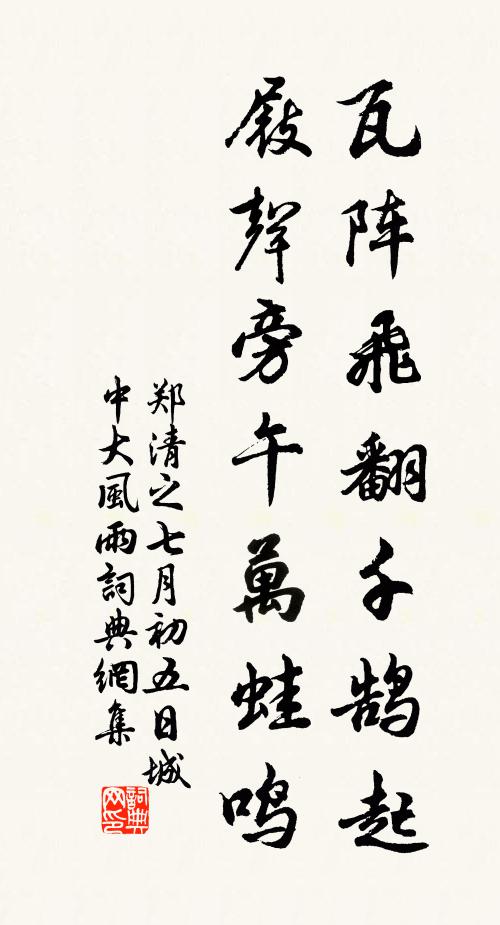 瓦阵飛翻千鹄起
屐聲旁午萬蛙鸣
郑清之七月初五日城
中大風雨詞典網集
詞典网印